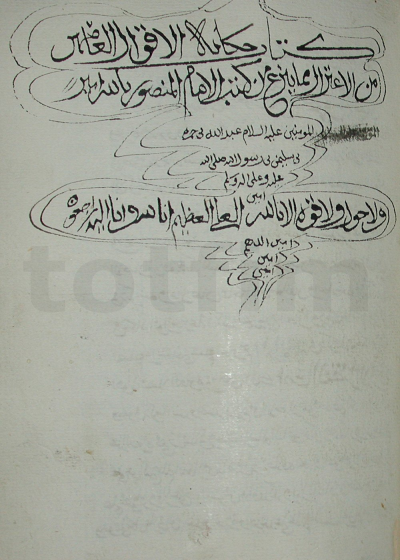 كتاب حكاية الاقوال العاصمه
من الاعتزال مما بزغ من كتب الامام المنصور بالله امير
المومنين عليه السلام عبد الله بن حمزه
بن سليمن بن رسول الله صلى الله
عليه وعلى اله وسلم
امين
ولا حول ولا قوه الا بالله العلي العظيم انا لله وانا اليه راجعون
امين اللهم
امين